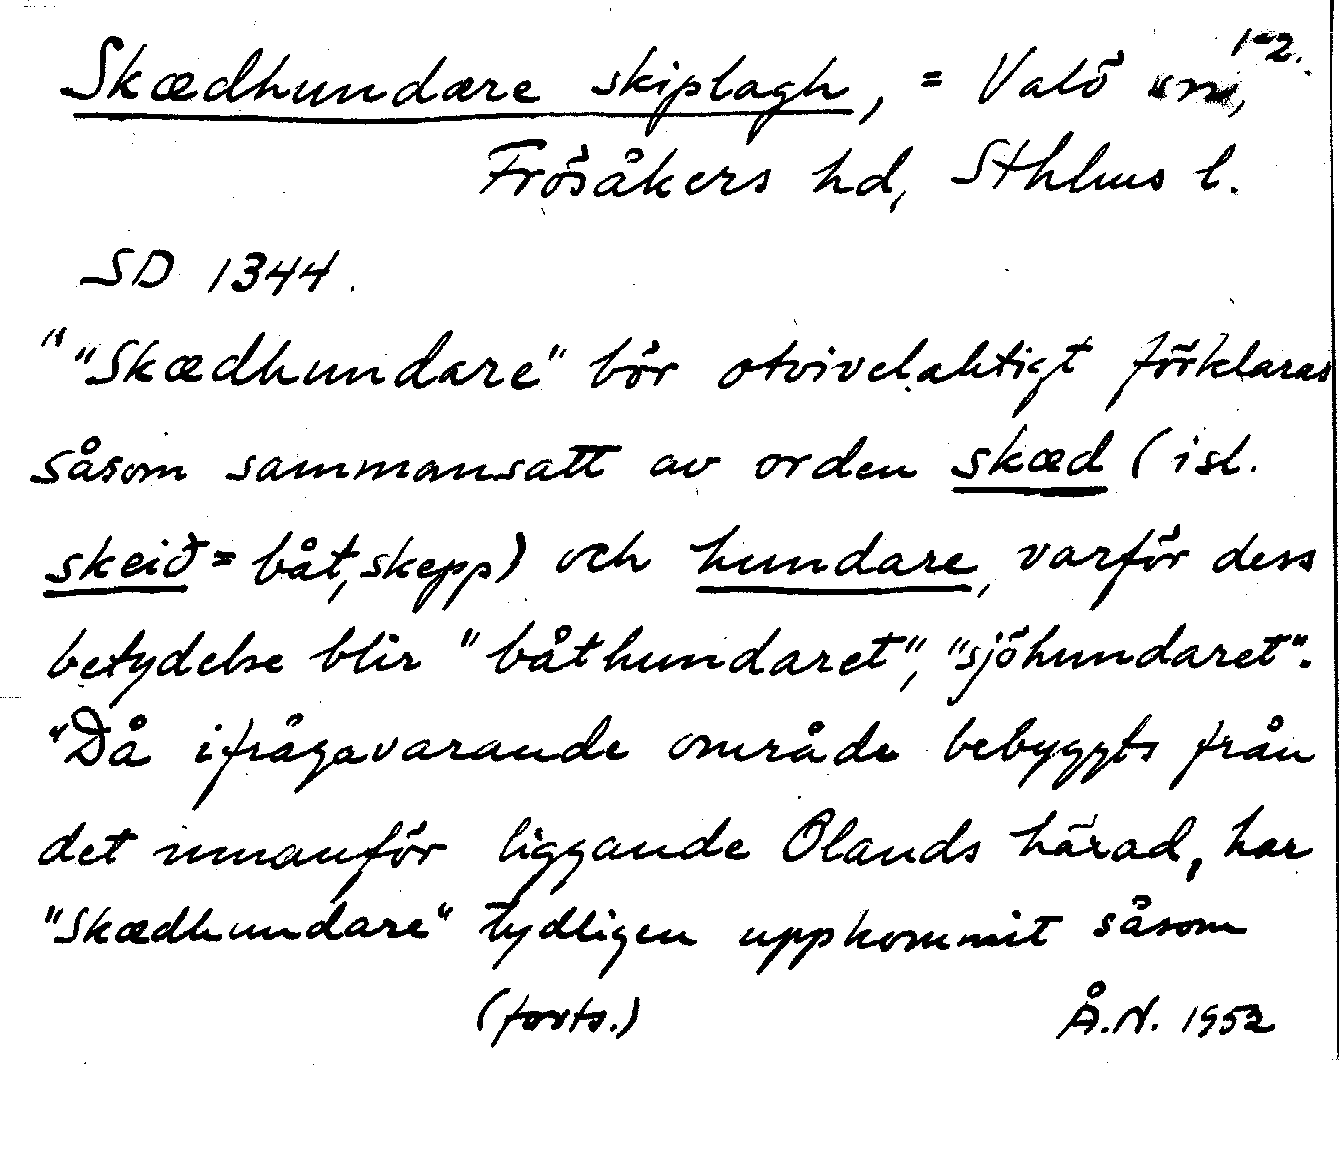 1-2.
Skædhundare skiplagh, = Valö sn,
Frösåkers hd, Sthlms l.
SD 1344.
" "Skædhundare" bör otvivelaktigt förklaras
såsom sammansatt av orden skæd (isl.
skeið = båt, skepp) och hundare, varför dess
betydelse blir "båthundaret", "sjöhundaret".
"Då ifrågavarande område bebyggts från
det innanför liggande Olands härad, har
"Skædhundare" tydligen uppkommit såsom
(forts.) Å.N. 1952